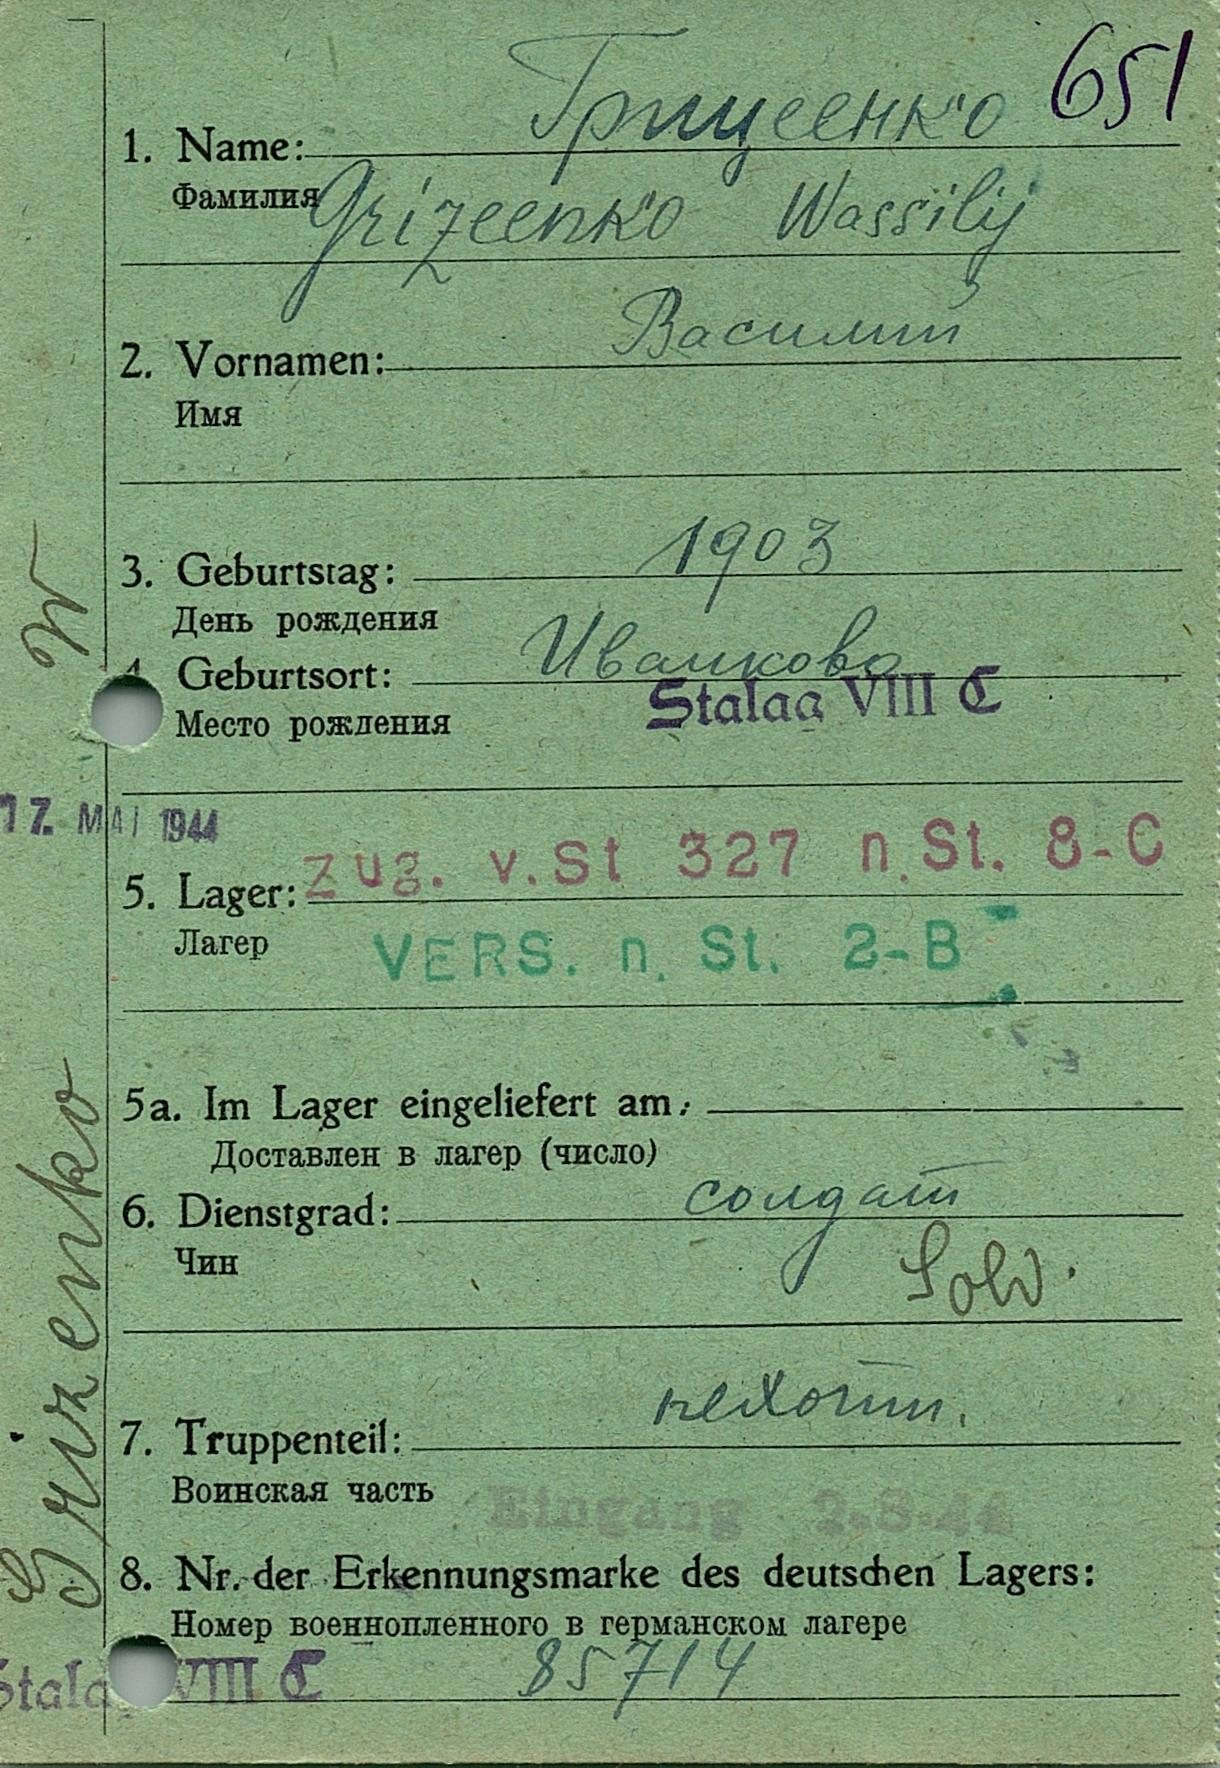 651
Грицеенко
1. Name:
Фамилия Grizeenko Wassilij
Василий
2. Vornamen:
Имя
1903
3. Geburtstag:
День рождения
4. Geburtsort: Иванкова
Stalag VIII C
Место рождения
17. MAI 1944
Zug. v. St 327 n. St. 8-C
5. Lager:
Лагер
VERS. n. St. 2-B
5a. Im Lager eingeliefert am:
Доставлен в лагер (число)
6. Dienstgrad: солдат
Чин
Sold.
пехотт.
7. Truppenteil:
Воинская часть
Eingang 2.8.44
8. Nr. der Erkennungsmarke des deutschen Lagers:
Номер военнопленного в германском лагере
85714
Stalag VIII C
Grizenko W